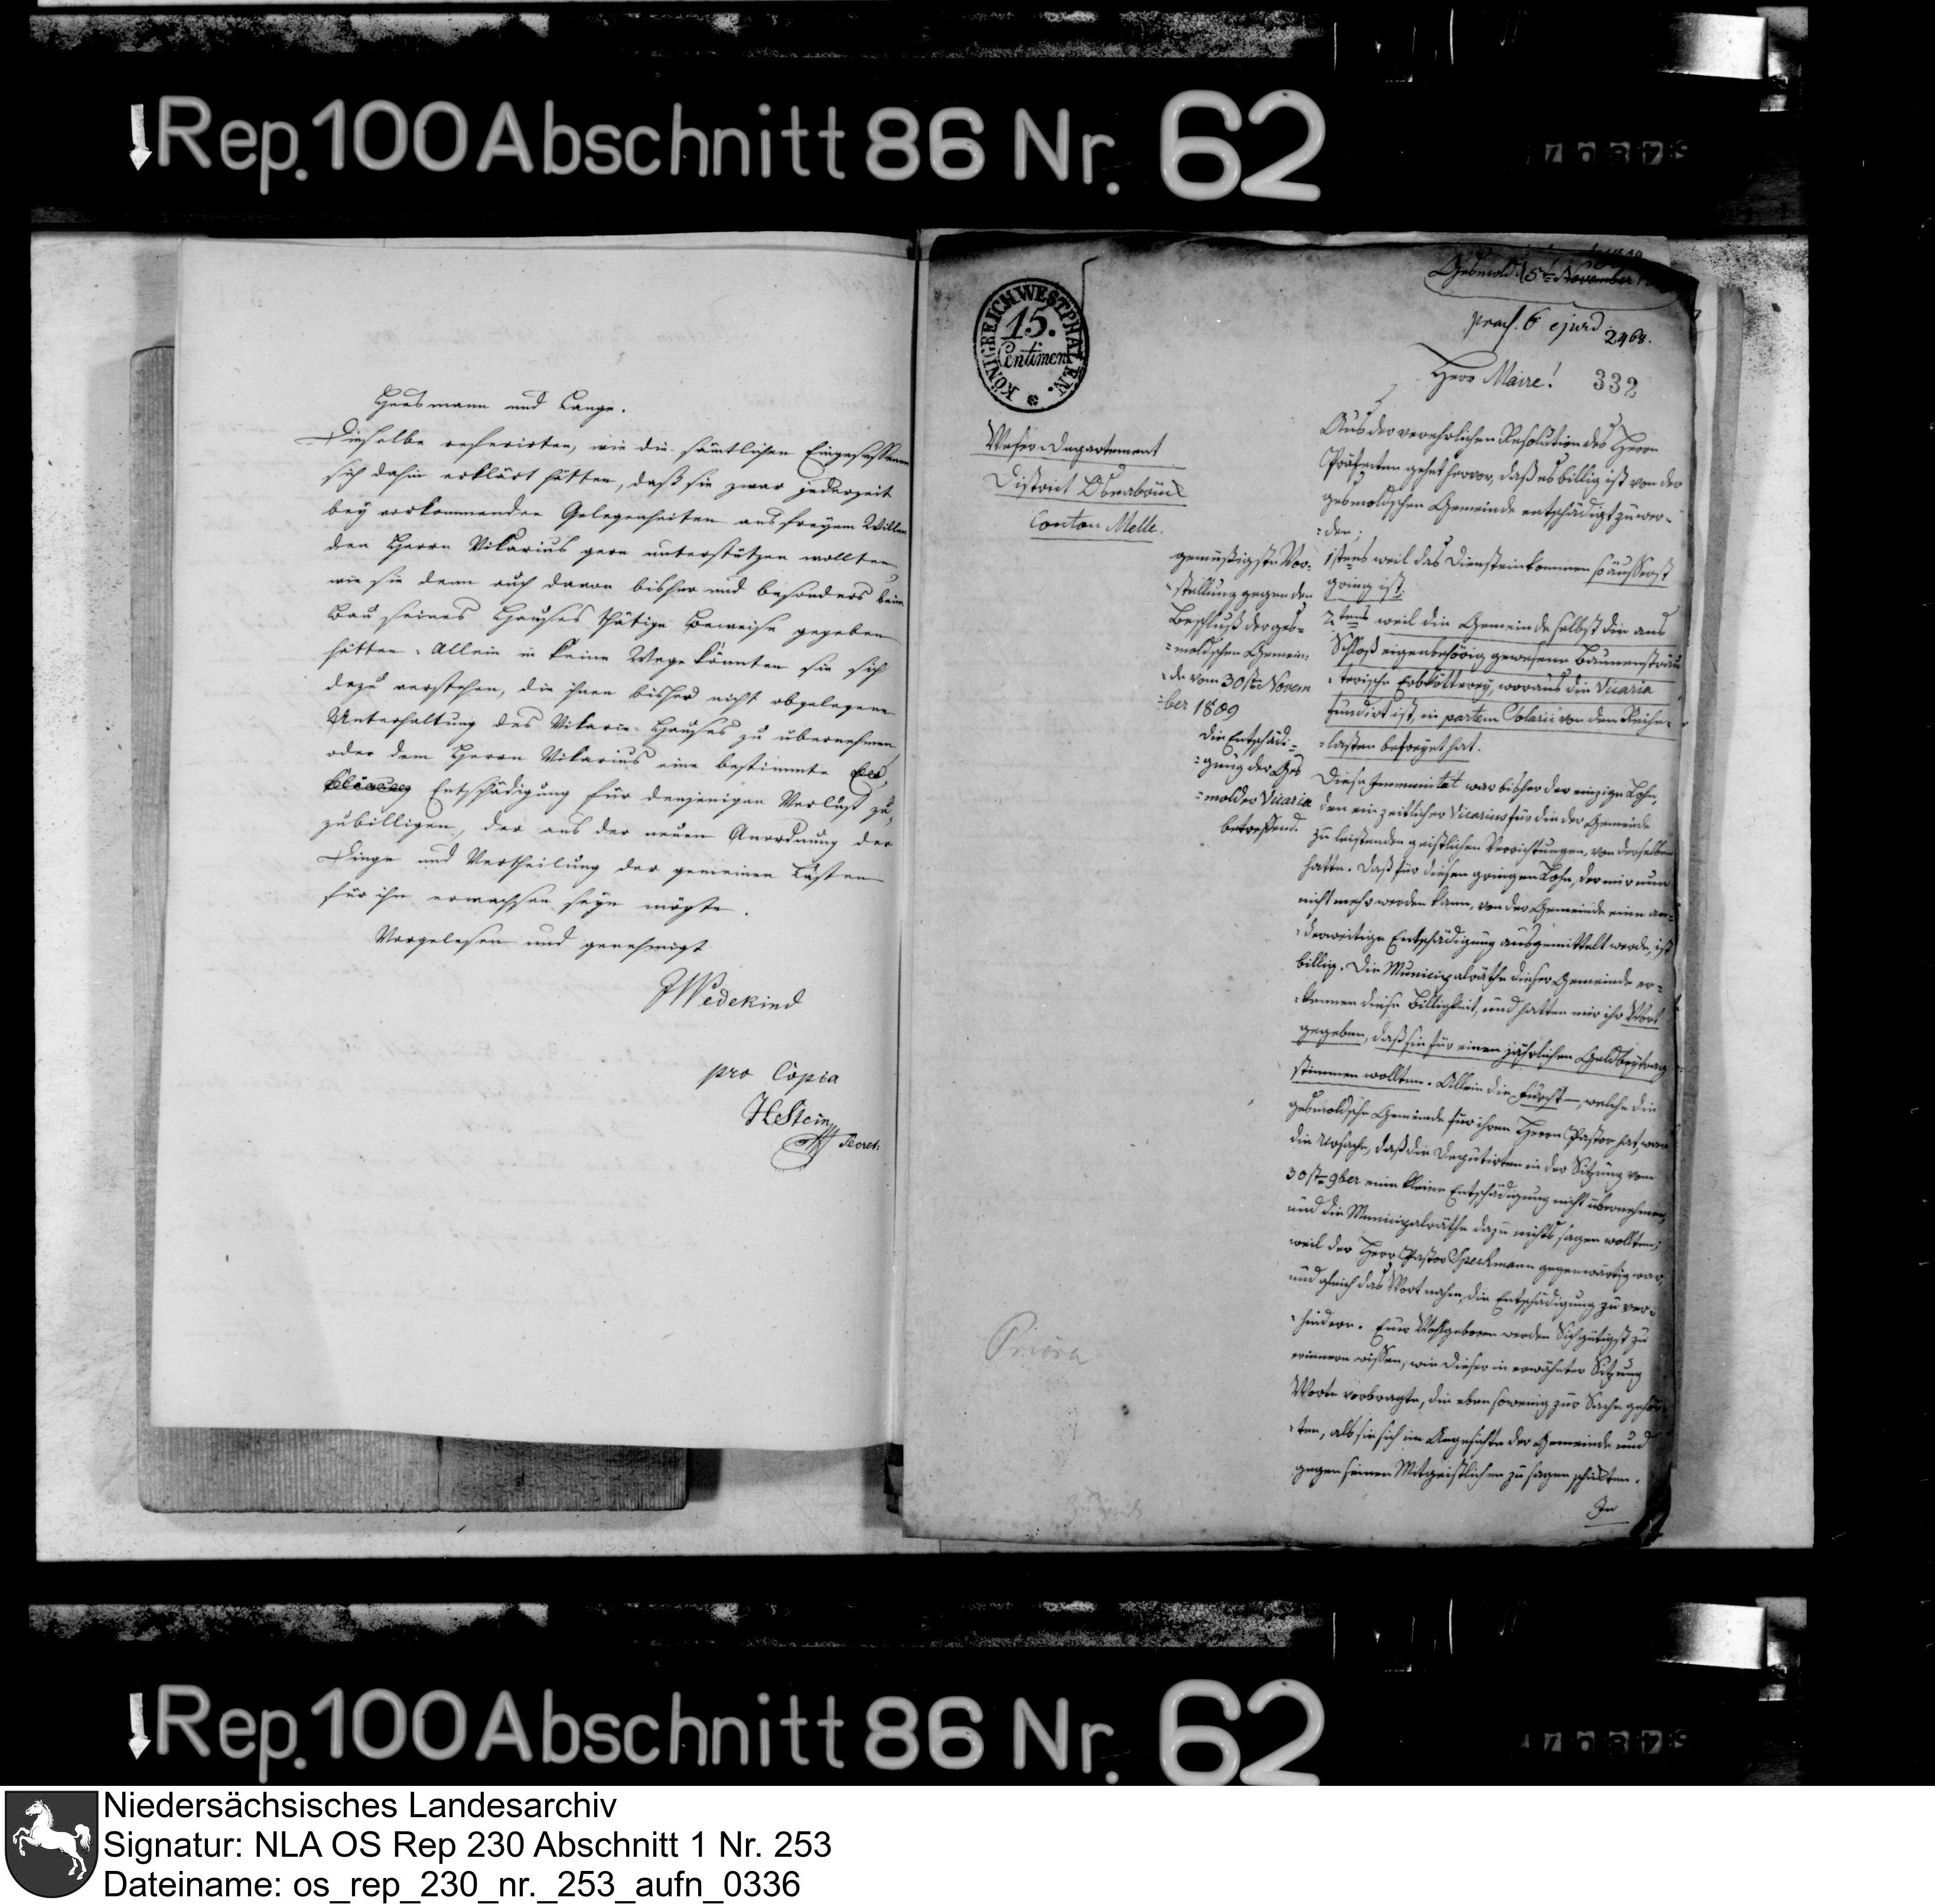 Rep. 100 Abschnitt 86 Nr. 62
Heesmann und Lange.
Dieselbe referirten, wie die sämtlichen Eingesessenen
sich dahin erklärt hätten, daß sie zwar jederzeit
bey vorkommenden Gelegenheiten aus freyem Willen
den Herrn Vikarius gern unterstützen wollten,
wie sie denn auch davon bisher und besonders beim
Bau seines Hauses thätige Beweise gegeben
hätten. Allein in keine Wege könnten sie sich
dazu verstehen, die ihnen bisher nicht obgelegene
Unterhaltung des Vikarie-Hauses zu übernehmen
oder dem Herrn Vikarius eine bestimmte
Entschädigung für denjenigen Verlust zu
zubilligen, der aus der neuen Anordnung der
Dinge und Vertheilung der gemeinen Lasten
für ihn erwachsen seyn mögte.
Vorgelesen und genehmigt
JWedekind
pro Copia
HStein
Secret.
KÖNIGREICH WESTPHALEN.
15.
Centimen
Gesmold 5t November
praes. 6 ejusd
2468.
Herr Maire!
332
Weser-Departement
District Osnabrück
Canton Melle.
gemüßigste Vor-
stellung gegen den
Beschluß der ges-
moldschen Gemein-
de vom 30st Novem
ber 1809
die Entschädi-
gung der Ges
molder Vicaria
betreffend.
Aus der verehrlichen Resolution des Herrn
Präfecten gehet hervor, daß es billig ist von der
gesmoldschen Gemeinde entschädigt zu wer-
den;
1stens weil das Diensteinkommen so äusserst
gering ist.
2tens weil die Gemeinde selbst die ans
Schloß eigenbehörig gewesene
Erbkötterey, woraus die Vicaria
fundirt ist, in partem Solarii von den Reihe-
lasten befreyet hat.
Diese Immunitet war bisher der einzige Lohn,
den ein zeitlicher Vicarius für die der Gemeinde
zu leistenden geistlichen Verrichtungen, von derselben
hatte. Daß für diesen geringen Lohn, der mir nun
nicht mehr werden kann, von der Gemeinde eine an-
derweitige Entschädigung ausgemittelt werde, ist
billig. Die Municipalräthe dieser Gemeinde er-
kennen diese Billigkeit, und hatten mir ihr Wort
gegeben, daß sie für einen jährlichen Geldbeytrag
stimmen wollten. Allein die Furcht—, welche die
gesmoldsche Gemeinde für ihren Herrn Pastor hat, war
die Ursache, daß die Deputirten in der Sitzung vom
30st 9ber eine kleine Entschädigung nicht übernehmen,
und die Municipalräthe dazu nichts sagen wollten;
weil der Herr Pastor Speckmann gegenwärtig war,
und gleich das Wort nahm, die Entschädigung zu ver-
hindern. Euer Wohlgeboren werden Sich gütigst zu
erinnern wissen, wie dieser in erwähnter Sitzung
Worte vorbragte, die eben so wenig zur Sache gehör
ten, als sie sich im Angesichte der Gemeinde und
gegen seinen Mitgeistlichen zu sagen schickten.
In
Rep. 100 Abschnitt 86 Nr. 62
Niedersächsisches Landesarchiv
Signatur: NLA OS Rep 230 Abschnitt 1 Nr. 253
Dateiname: os_rep_230_nr._253_aufn_0336